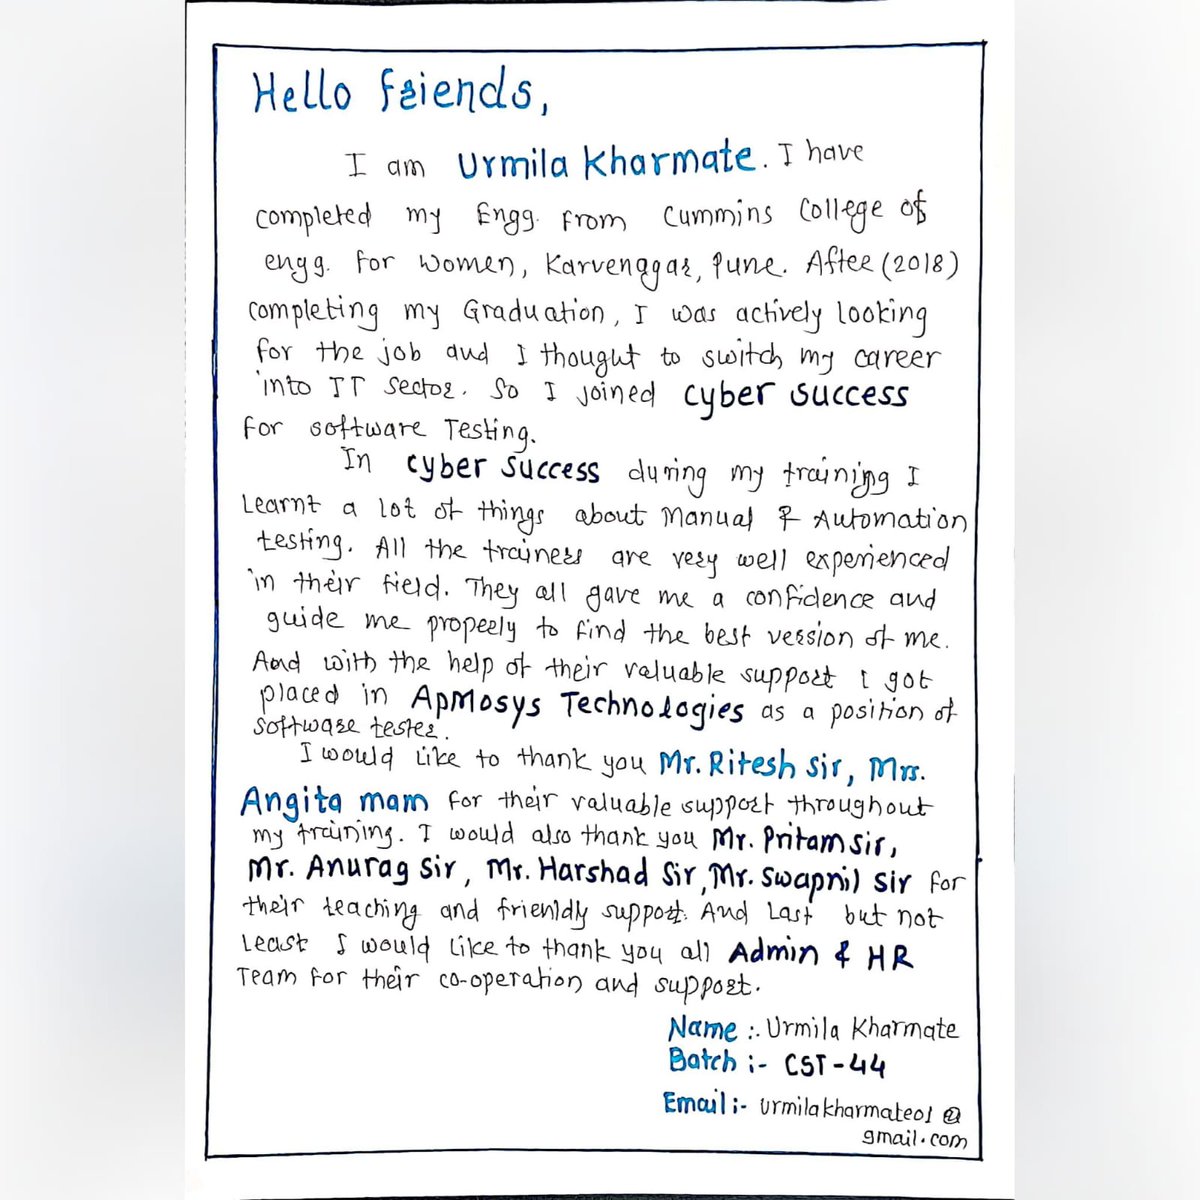 Hello friends,
I am Urmila Kharmate. I have
completed my Engg. from Cummins College of
engg. for women, Karvenggar, Pune. After (2018)
completing my Graduation, I was actively looking
for the job and I thought to switch my career
into IT sector. So I joined Cyber Success
for software Testing.
In Cyber Success during my training I
Learnt a lot of things about Manual & Automation
testing. All the trainers are very well experienced
in their field. They all gave me a confidence and
guide me properly to find the best version of me.
And with the help of their valuable support I got
placed in ApMosys Technologies as a position of
software tester.
I would like to thank you Mr. Ritesh sir, Mrs.
Angita mam for their valuable support throughout
my training. I would also thank you Mr. Pritam sir,
Mr. Anurag Sir, Mr. Harshad Sir, Mr. Swapnil sir for
their teaching and friendly support. And Last but not
Least I would like to thank you all Admin & HR
Team for their co-operation and support.
Name :- Urmila Kharmate
Batch :- CST-44
Email :- urmilakharmate01@
gmail.com